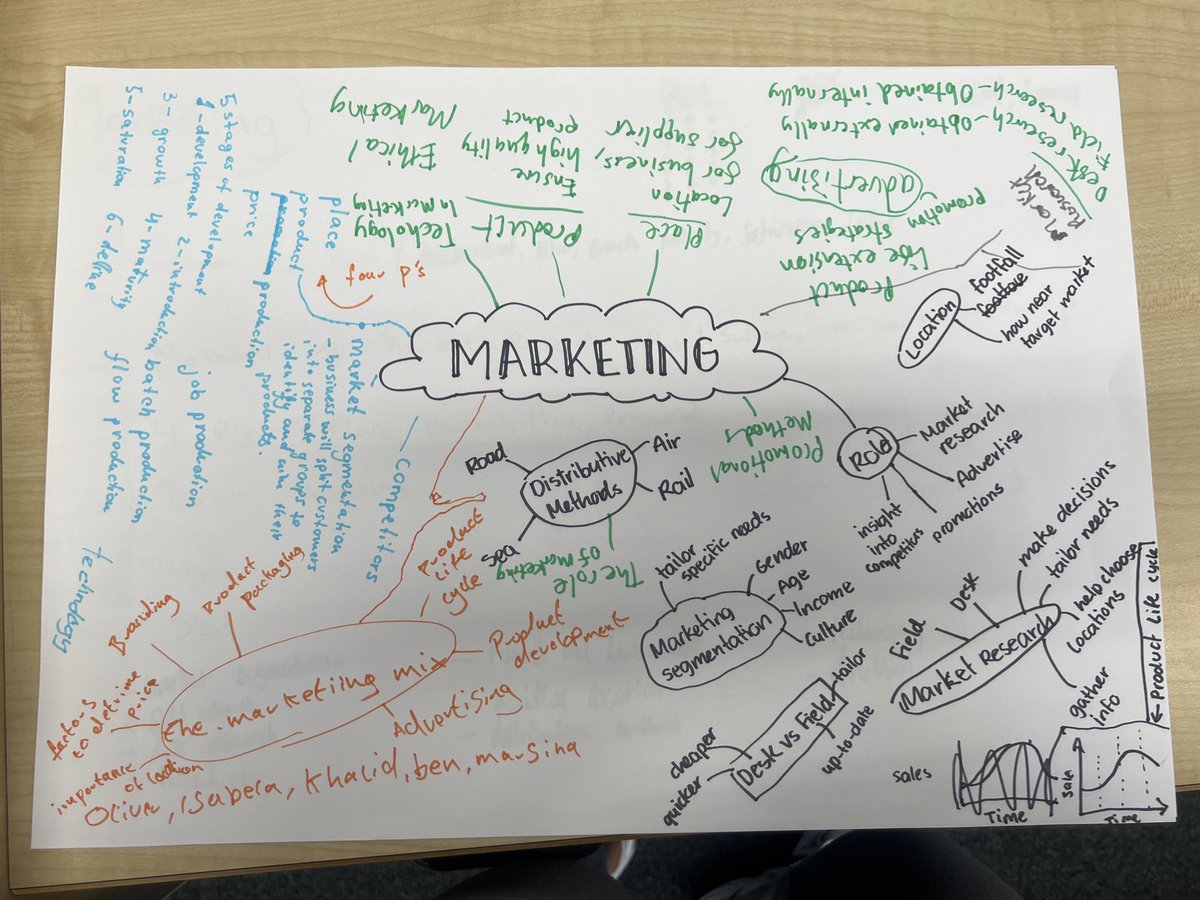 MARKETING
5 stages of development
1-development 2-introduction
3-growth 4-maturity
5-saturation 6-define
job production
batch production
flow production
technology
place
product
production
price
four p's
market segmentation
- business will split customers
into separate groups to
identify and aim their
products.
Competitors
Techology
In Marketing
Ethical
Marketing
Product
Ensure
high quality
product
Place
Location
for business,
for supplier
advertizing
Product
life extension
strategies
promotion
Market
Research
Desk research-Obtained externally
Field research-Obtained internally
Location
footfall
how near
target market
Role
Market
research
Advertise
promotions
insight
into
competitors
Promotional
Methods
Distributive
Methods
Road
Air
Rail
Sea
The role
of marketing
Marketing
segmentation
tailor
specific needs
Gender
Age
Income
Culture
Market Research
Field
Desk
make decisions
tailor needs
help choose
locations
gather
info
Desk vs Field
cheaper
quicker
tailor
up-to-date
Product Life cycle
sales
Time
Sale
Time
the marketiing mix
Branding
Product
packaging
Product
life
cycle
Product
development
Advertising
factors
to detrime
price
importance
of location
Oliver, Isabela, Khalid, ben, marsina